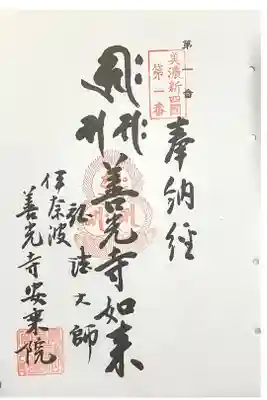 第一番
美濃新四国
第一番
奉納経
善光寺如来
弘法大師
伊奈波
善光寺安乗院